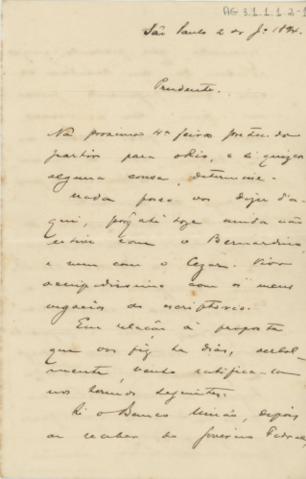 AG 3.1.1.2-1
São Paulo 2 de Jº 1894.
Prudente.
Na proxima 4ª feira pretendo
partir para o Rio, e si quizer
alguma cousa, determine.
Nada posso vos dizer d'a-
qui, porq̃ até hoje ainda não
estive com o Bernardino
e nem com o Cezar. Vivo
occupadissimo com os meus
negocios do escriptorio.
Em relação á proposta
que vos fiz ha dias, verbal-
mente, venho ratifical-a
nos termos seguintes.
Si o Banco União, depois
de receber do Governo Federal,